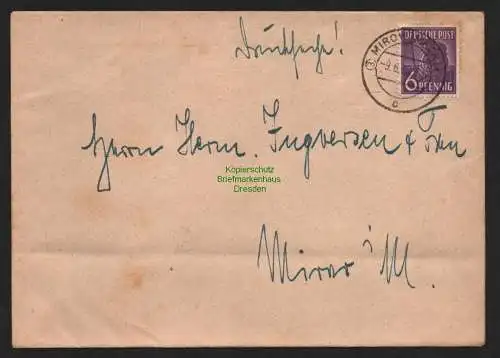 Drucksache!
DEUTSCHE POST
MIRO
6 PFENNIG
Herrn Herm. Ingversen & Frau
Kopierschutz
Briefmarkenhaus
Dresden
Mirow i M.